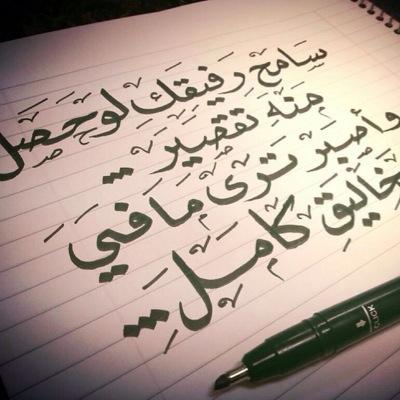 سَامِح رَفيقَك لَو حَصَل
مِنَه تَقصِير ...
وأصبَر تَرى مَا فَيَ
خَالِيقِ كَامِلَ ...
CLICK